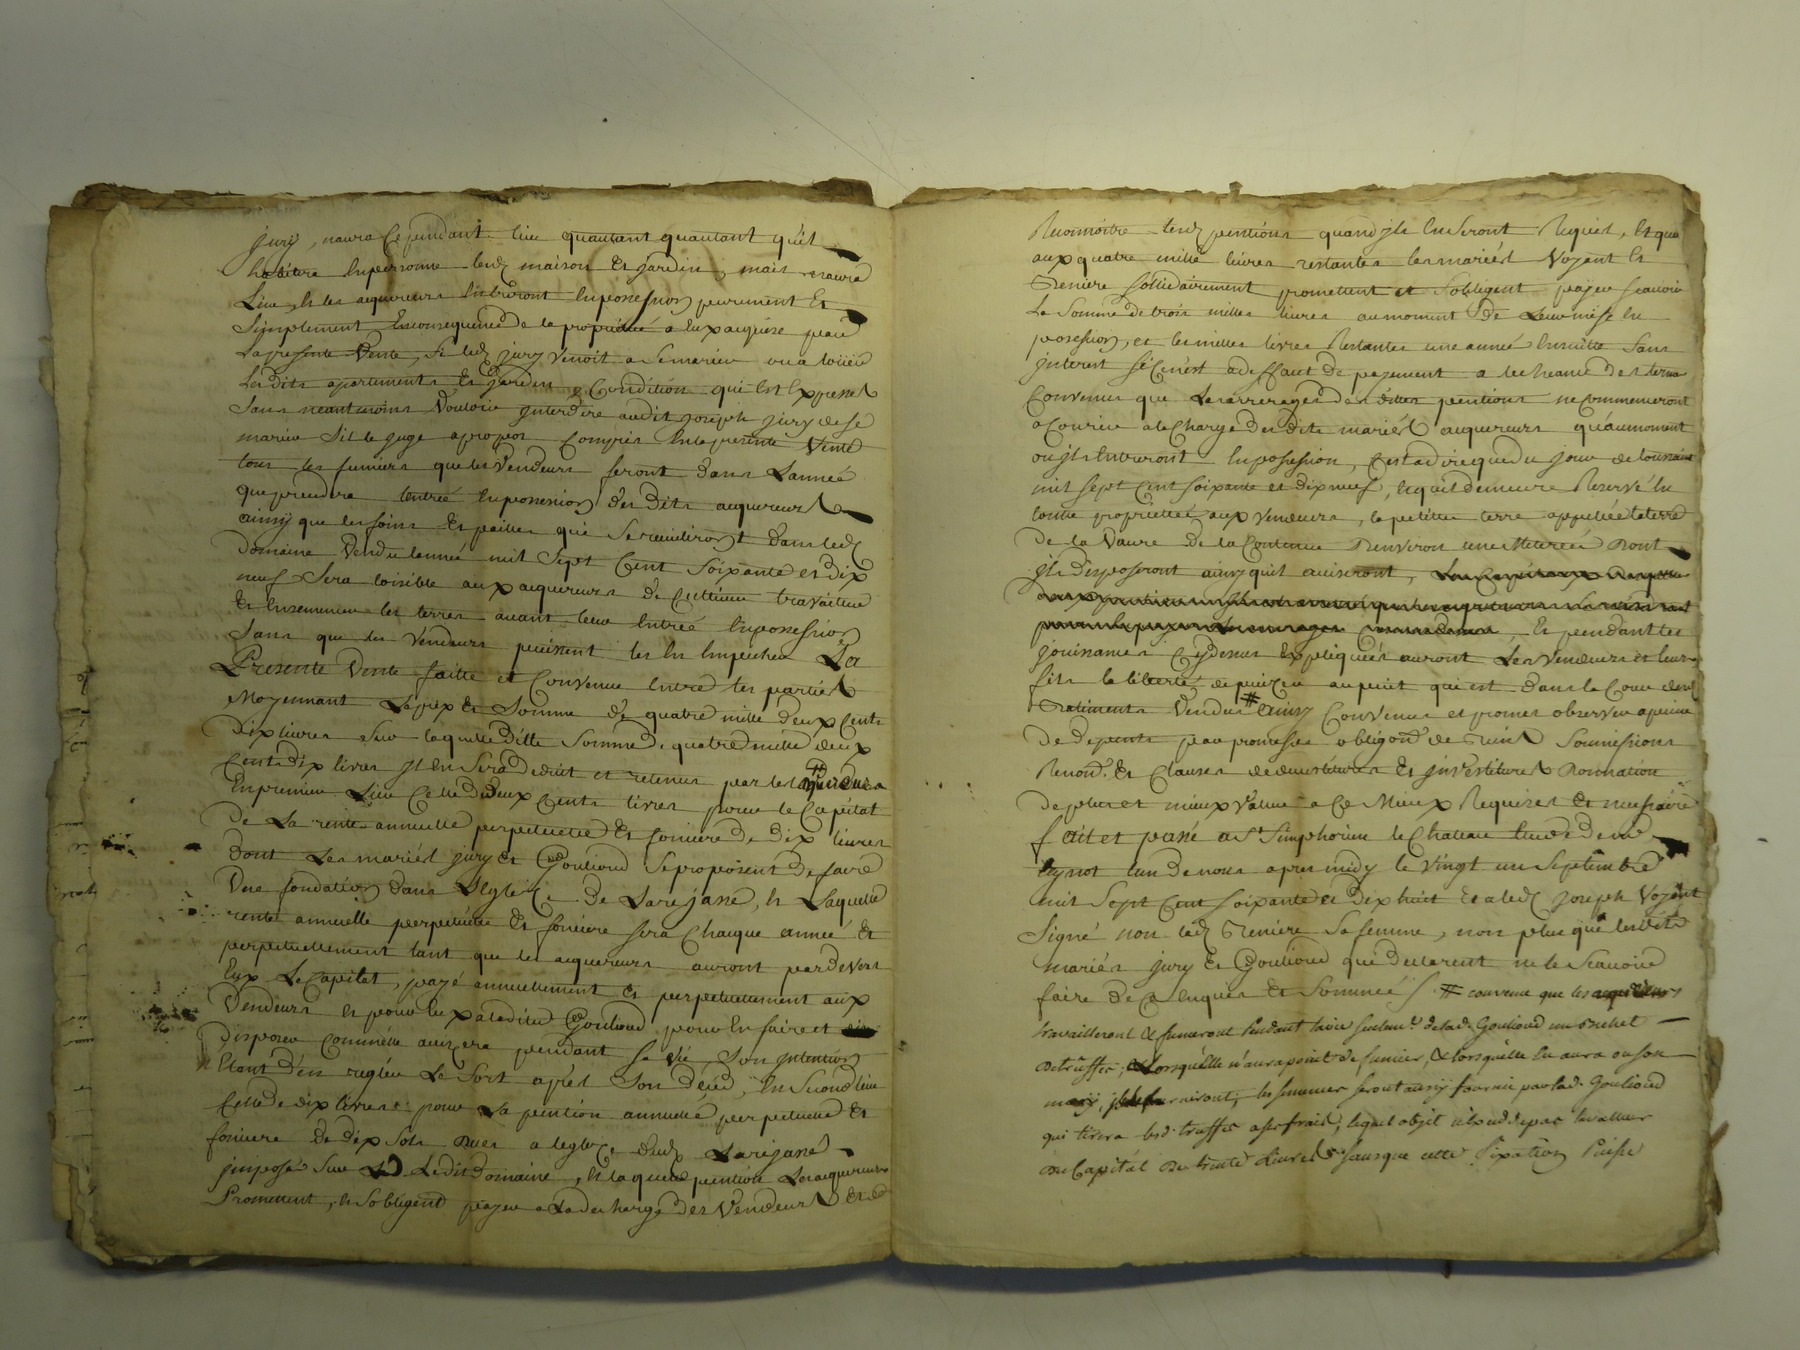 jury, naura Cependant lieu quautant quautant quil
habitera Enpersonne lesd maison Et jardin, mais naura
Lieu, Et les acquereurs Entreront Enpossession purement Et
Simplement Enconsequence de la propriété a Eux acquise par
La presente Vente, Si led jury Venoit a Semarier ou a loüer
Lesdits apartements Et jardin, Condition qui Est Expresse
Sans neantmoins Vouloir interdire audit joseph jury de se
marier Sil le juge apropos Compris Enlapresente Vente
tous les fumiers que les Vendeurs feront dans Lannée
que prendra lentrée Enpossession des Dits acquereurs
ainsy que les foins Et pailles qui Se recuilliront dans led
domaine Vendu lannée mil Sept Cent Soixante et dix
neuf Sera loisible aux acquereurs de Cultiver travailler
Et Ensemencer les terres avant leur Entrée Enpossession
Sans que les Vendeurs puissent les En Empecher La
Presente Vente faitte et Convenue Entre les parties
Moyennant Le prix Et Somme de quatre mille deux Cents
Dix livres Sur laquelle ditte Somme de quatre mille deux
Cents dix livres jl En Sera deduit et retenus par les acquereurs
En premier Lieu Celle de deux Cents livres pour le Capital
De La rente annuelle perpetuelle Et fonciere de dix livres
dont Les mariés jury Et Goulioud Se proposent de faire
Une fondation dans LEglise de Larajasse, Et Laquelle
rente annuelle perpetuelle Et fonciere sera Chaque année Et
perpetuellement tant que les acquereurs auront pardevers
Eux Le Capital, payé annuellement Et perpetuellement aux
Vendeurs Et pour Eux aladitte Goulioud pour En faire et
disposer Comme Elle avisera pendant sa Vie, Son jntention
Etant den regler Le Sort après Son décéd, En Second lieu
Celle de dix livres pour La pention annuelle perpetuelle Et
fonciere de dix Sols dues a leglise dud Larajasse
jmposé Sur Ledit Domaine, Et laquelle pention Les acquereurs
Promettent, Et Sobligent payer a La decharge des Vendeurs Et d
Reconnoitre lesd pentions quand jls En Seront Requis, Et qua
aux quatre mille livres restantes les mariés Voyant Et
Greniere Sollidairement promettent et Sobligent payer scavoir
La Somme de trois milles livres au moment de Leur mise En
possession, et les milles livres Restantes une année Ensuitte Sans
jnterest Si Cen'est a deffaut de payement a lecheance des termes
Convenus que Les arrerages des dittes pentions ne Commenceront
a Courir a la Charge des dits mariés acquereurs qu'au moment
ou jls Entreront En possession, Cest adire que du jour de toussaint
mil Sept Cent Soixante et dix neuf, Et quil demeure Reservé En
toutte proprietté aux Vendeurs, la petitte terre appellée la terre
De la Vaure de la Contenue Denviron une Meterée Dont
jls disposeront ainsy quil aviseront,
Et pendant les
jouissances Cydessus Expliquées auront Les Vendeurs et leur
fils la liberté de puizer au puit qui est dans la Cour desd
Batiments Vendus # ainsy Convenus et promis observer apeine
De depents par promesses obligons de Biens Soumissions
Renons Et Clauses de devestitures Et jnvestitures Donnation
De plus et mieux Value a Ce Mieux Requises Et necessaire
fait et passé a St Simphorien le Chateau Etude de me
lun de nous apres midy le Vingt un Septembre
mil Sept Cent Soixante Et Dix huit Et a led joseph Voyant
Signé non lad Greniere Sa femme, non plus que lesdits
mariés jury Et Goulioud qui declarent ne le Scavoir
faire de Ce Enquis Et Sommés / # convenu que les acquereurs
travailleront & fumeront Pendant lavie seulemt de lad. Goulioud un bichet
De truffes, & Lorsquelle n'aura point de fumier, & lorsquelle En aura ou son
mary, fourniront, les semences seront aussy fournie par lad. Goulioud
qui tirera lesd. truffes a ses frais, lequel objet n'excedde pas la valleur
du Capital De trente Livres sans que cette Fixation Puisse